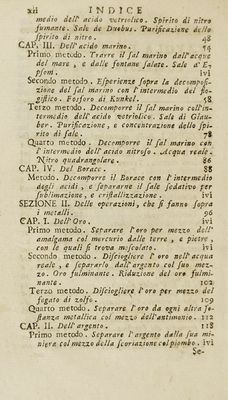 xii INDICE
medio dell' acido vetriolico. Spirito di nitro
fumante. Sale de Duobus. Purificazione dello
spirito di nitro. 48
CAP. III. Dell' acido marino. 59
Primo metodo. Trarre il sal marino dall' acque
del mare, e dalle fontane salate. Sale d' E-
psom. ivi
Secondo metodo. Esperienze sopra la decomposi-
zione del sal marino con l'intermedio del flo-
gistico. Fosforo di Kunkel. 58
Terzo metodo. Decomporre il sal marino coll'in-
termedio dell' acido vetriolico. Sale di Glau-
ber. Purificazione, e concentrazione dello spi-
rito di sale. 78
Quarto metodo. Decomporre il sal marino con
l'intermedio dell' acido nitroso. Acqua reale.
Nitro quadrangolare. 86
CAP. IV. Del Borace. 88
Metodo. Decomporre il Borace con l'intermedio
degli acidi, e separarne il sale sedativo per
sublimazione, e cristallizzazione. ivi
SEZIONE II. Delle operazioni, che si fanno sopra
i metalli. 96
CAP. I. Dell' Oro. ivi
Primo metodo. Separare l'oro per mezzo dell'
amalgama col mercurio dalle terre, e pietre,
con le quali si trova mescolato. ivi
Secondo metodo. Disciogliere l'oro nell' acqua
reale, e separarlo dall' argento col suo mez-
zo. Oro fulminante. Riduzione del oro fulmi-
nante. 102
Terzo metodo. Disciogliere l'oro per mezzo del
fegato di zolfo. 109
Quarto metodo. Separare l'oro da ogni altra so-
stanza metallica col mezzo dell' antimonio. 112
CAP. II. Dell' argento. 118
Primo metodo. Separare l'argento dalla sua mi-
niera col mezzo della scoriazione col piombo. ivi
Se-